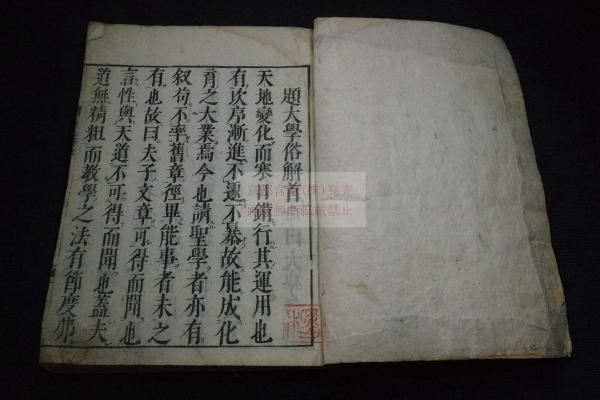 題大學俗解首
天地變化而寒 錯行其運用也
有次序漸進不遽不暴故能成化
育之大業焉今也請聖學者亦有
叙句不率舊章徑畢能事者未之
有也故曰夫子文章可得而聞也
言性與天道不可得而聞也蓋夫
道無精粗而教學之法有節度弗